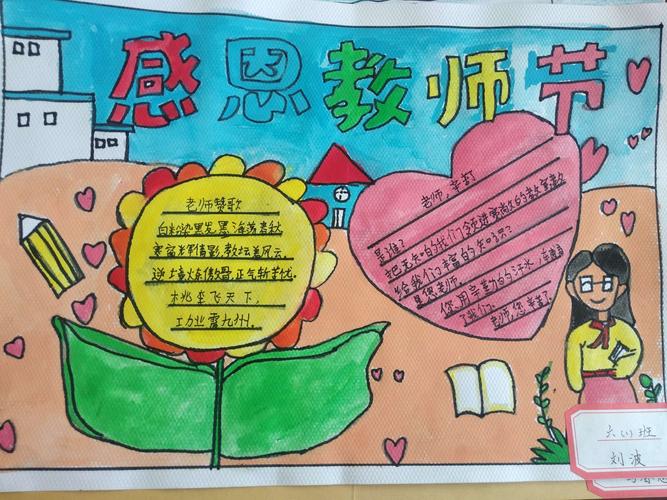 感恩教师节
老师赞歌
白粉染黑发墨海荡春秋
寒窗倩影,教坛风云
逆境炼傲骨,正气斩苦忧.
桃李飞天下,
功业震九州.
老师,辛苦
是谁?
把无知的我们领进宽敞的教室,教
给我们丰富的知识?
是您老师.
您用辛勤的汗水,
了我们.老师,您辛苦了.
六(1)班
刘波